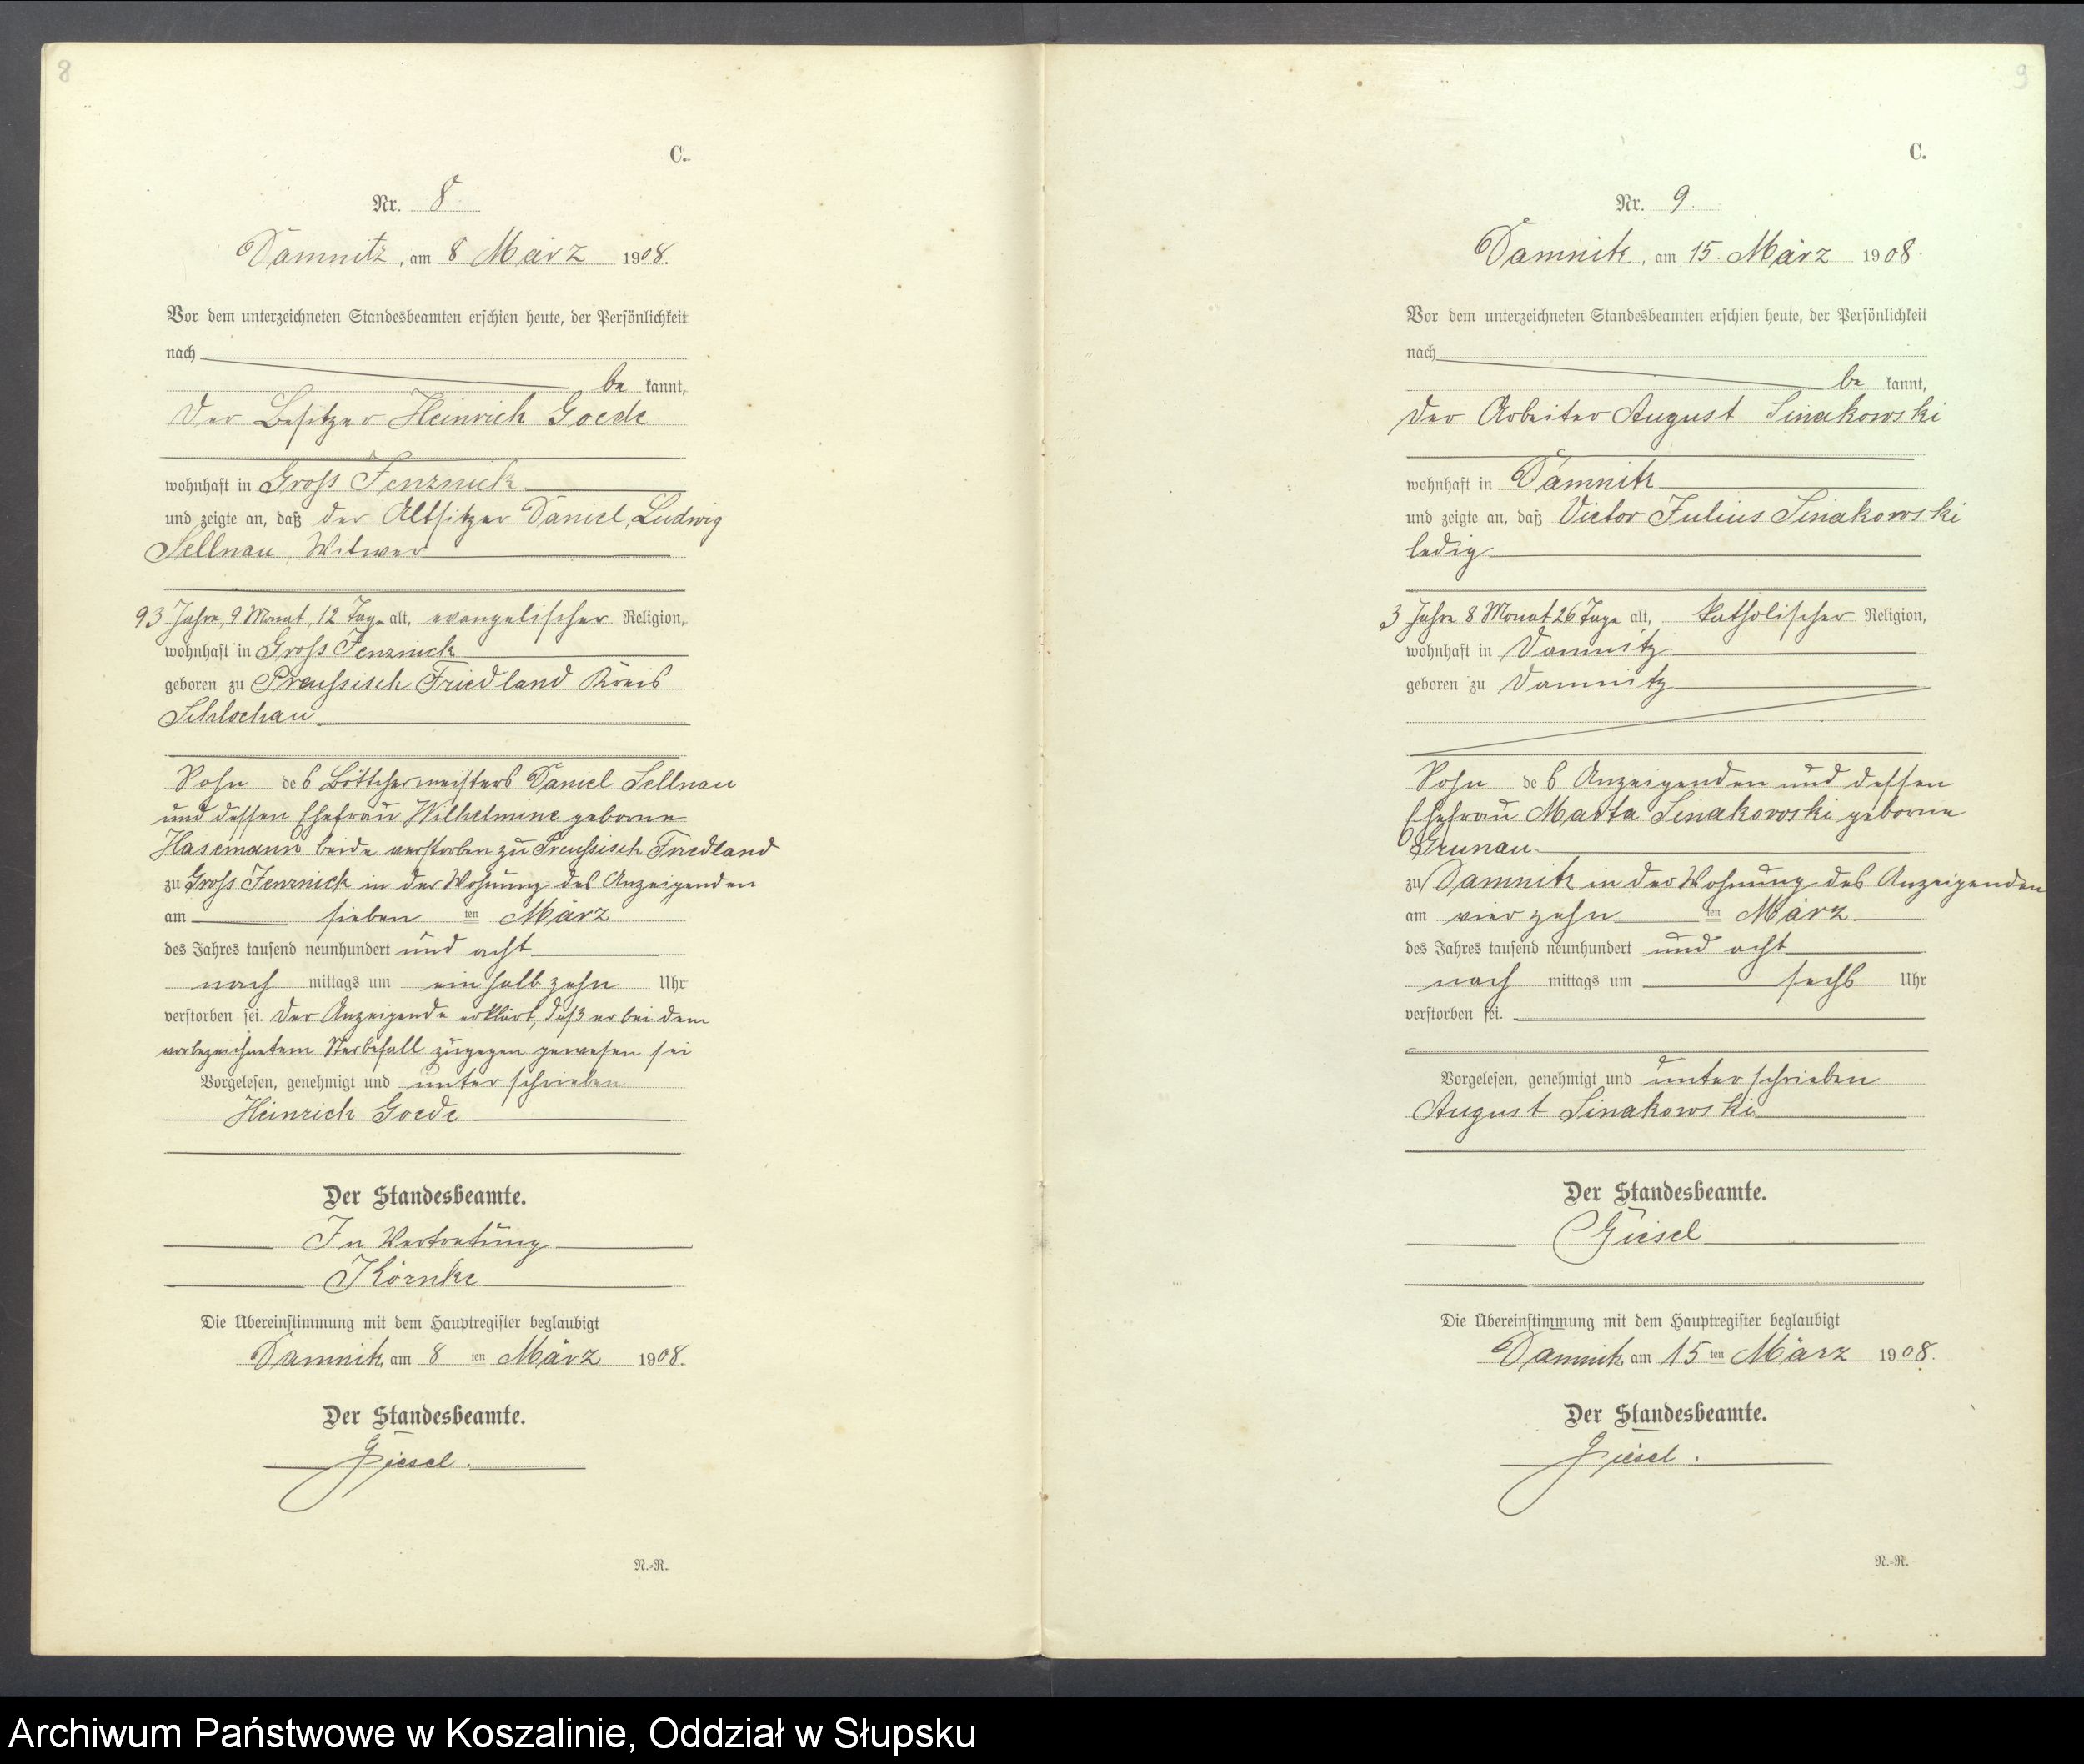 8
C.
Nr. 8.
Damnitz, am 8 März 1908.
Vor dem unterzeichneten Standesbeamten erschien heute, der Persönlichkeit
nach
be kannt,
der Besitzer Heinrich Goede
wohnhaft in Gross Jenznick
und zeigte an, daß der Altsitzer Daniel, Ludwig
Sellnau, Witwer
93 Jahre, 9 Monat, 12 Tage alt, evangelischer Religion,
wohnhaft in Gross Jenznick
geboren zu Preussisch Friedland Kreis
Schlochau
Sohn des Böttchermeisters Daniel Sellnau
und dessen Ehefrau Wilhelmine geborne
Hasemann beide verstorben zu Preussisch Friedland
zu Gross Jenznick in der Wohnung des Anzeigenden
am sieben ten März
des Jahres tausend neunhundert und acht
nach mittags um ein halb zehn Uhr
verstorben sei. Der Anzeigende erklärt, daß er bei dem
vorbezeichnetem Sterbefall zugegen gewesen sei
Vorgelesen, genehmigt und unterschrieben
Heinrich Goede
Der Standesbeamte.
In Vertretung
Körnke
Die Übereinstimmung mit dem Hauptregister beglaubigt
Damnitz am 8 ten März 1908.
Der Standesbeamte.
Giesel.
N.-R.
9
C.
Nr. 9.
Damnitz, am 15. März 1908.
Vor dem unterzeichneten Standesbeamten erschien heute, der Persönlichkeit
nach
be kannt,
der Arbeiter August Sinakowski
wohnhaft in Damnitz
und zeigte an, daß Victor Julius Sinakowski
ledig
3 Jahre 8 Monat 26 Tage alt, katholischer Religion,
wohnhaft in Damnitz
geboren zu Damnitz
Sohn des Anzeigenden und dessen
Ehefrau Marta Sinakowski geborne
Grunau
zu Damnitz in der Wohnung des Anzeigenden
am vierzehn ten März
des Jahres tausend neunhundert und acht
nach mittags um sechs Uhr
verstorben sei.
Vorgelesen, genehmigt und unterschrieben
August Sinakowski
Der Standesbeamte.
Giesel
Die Übereinstimmung mit dem Hauptregister beglaubigt
Damnitz am 15 ten März 1908.
Der Standesbeamte.
Giesel.
N.-R.
Archiwum Państwowe w Koszalinie, Oddział w Słupsku